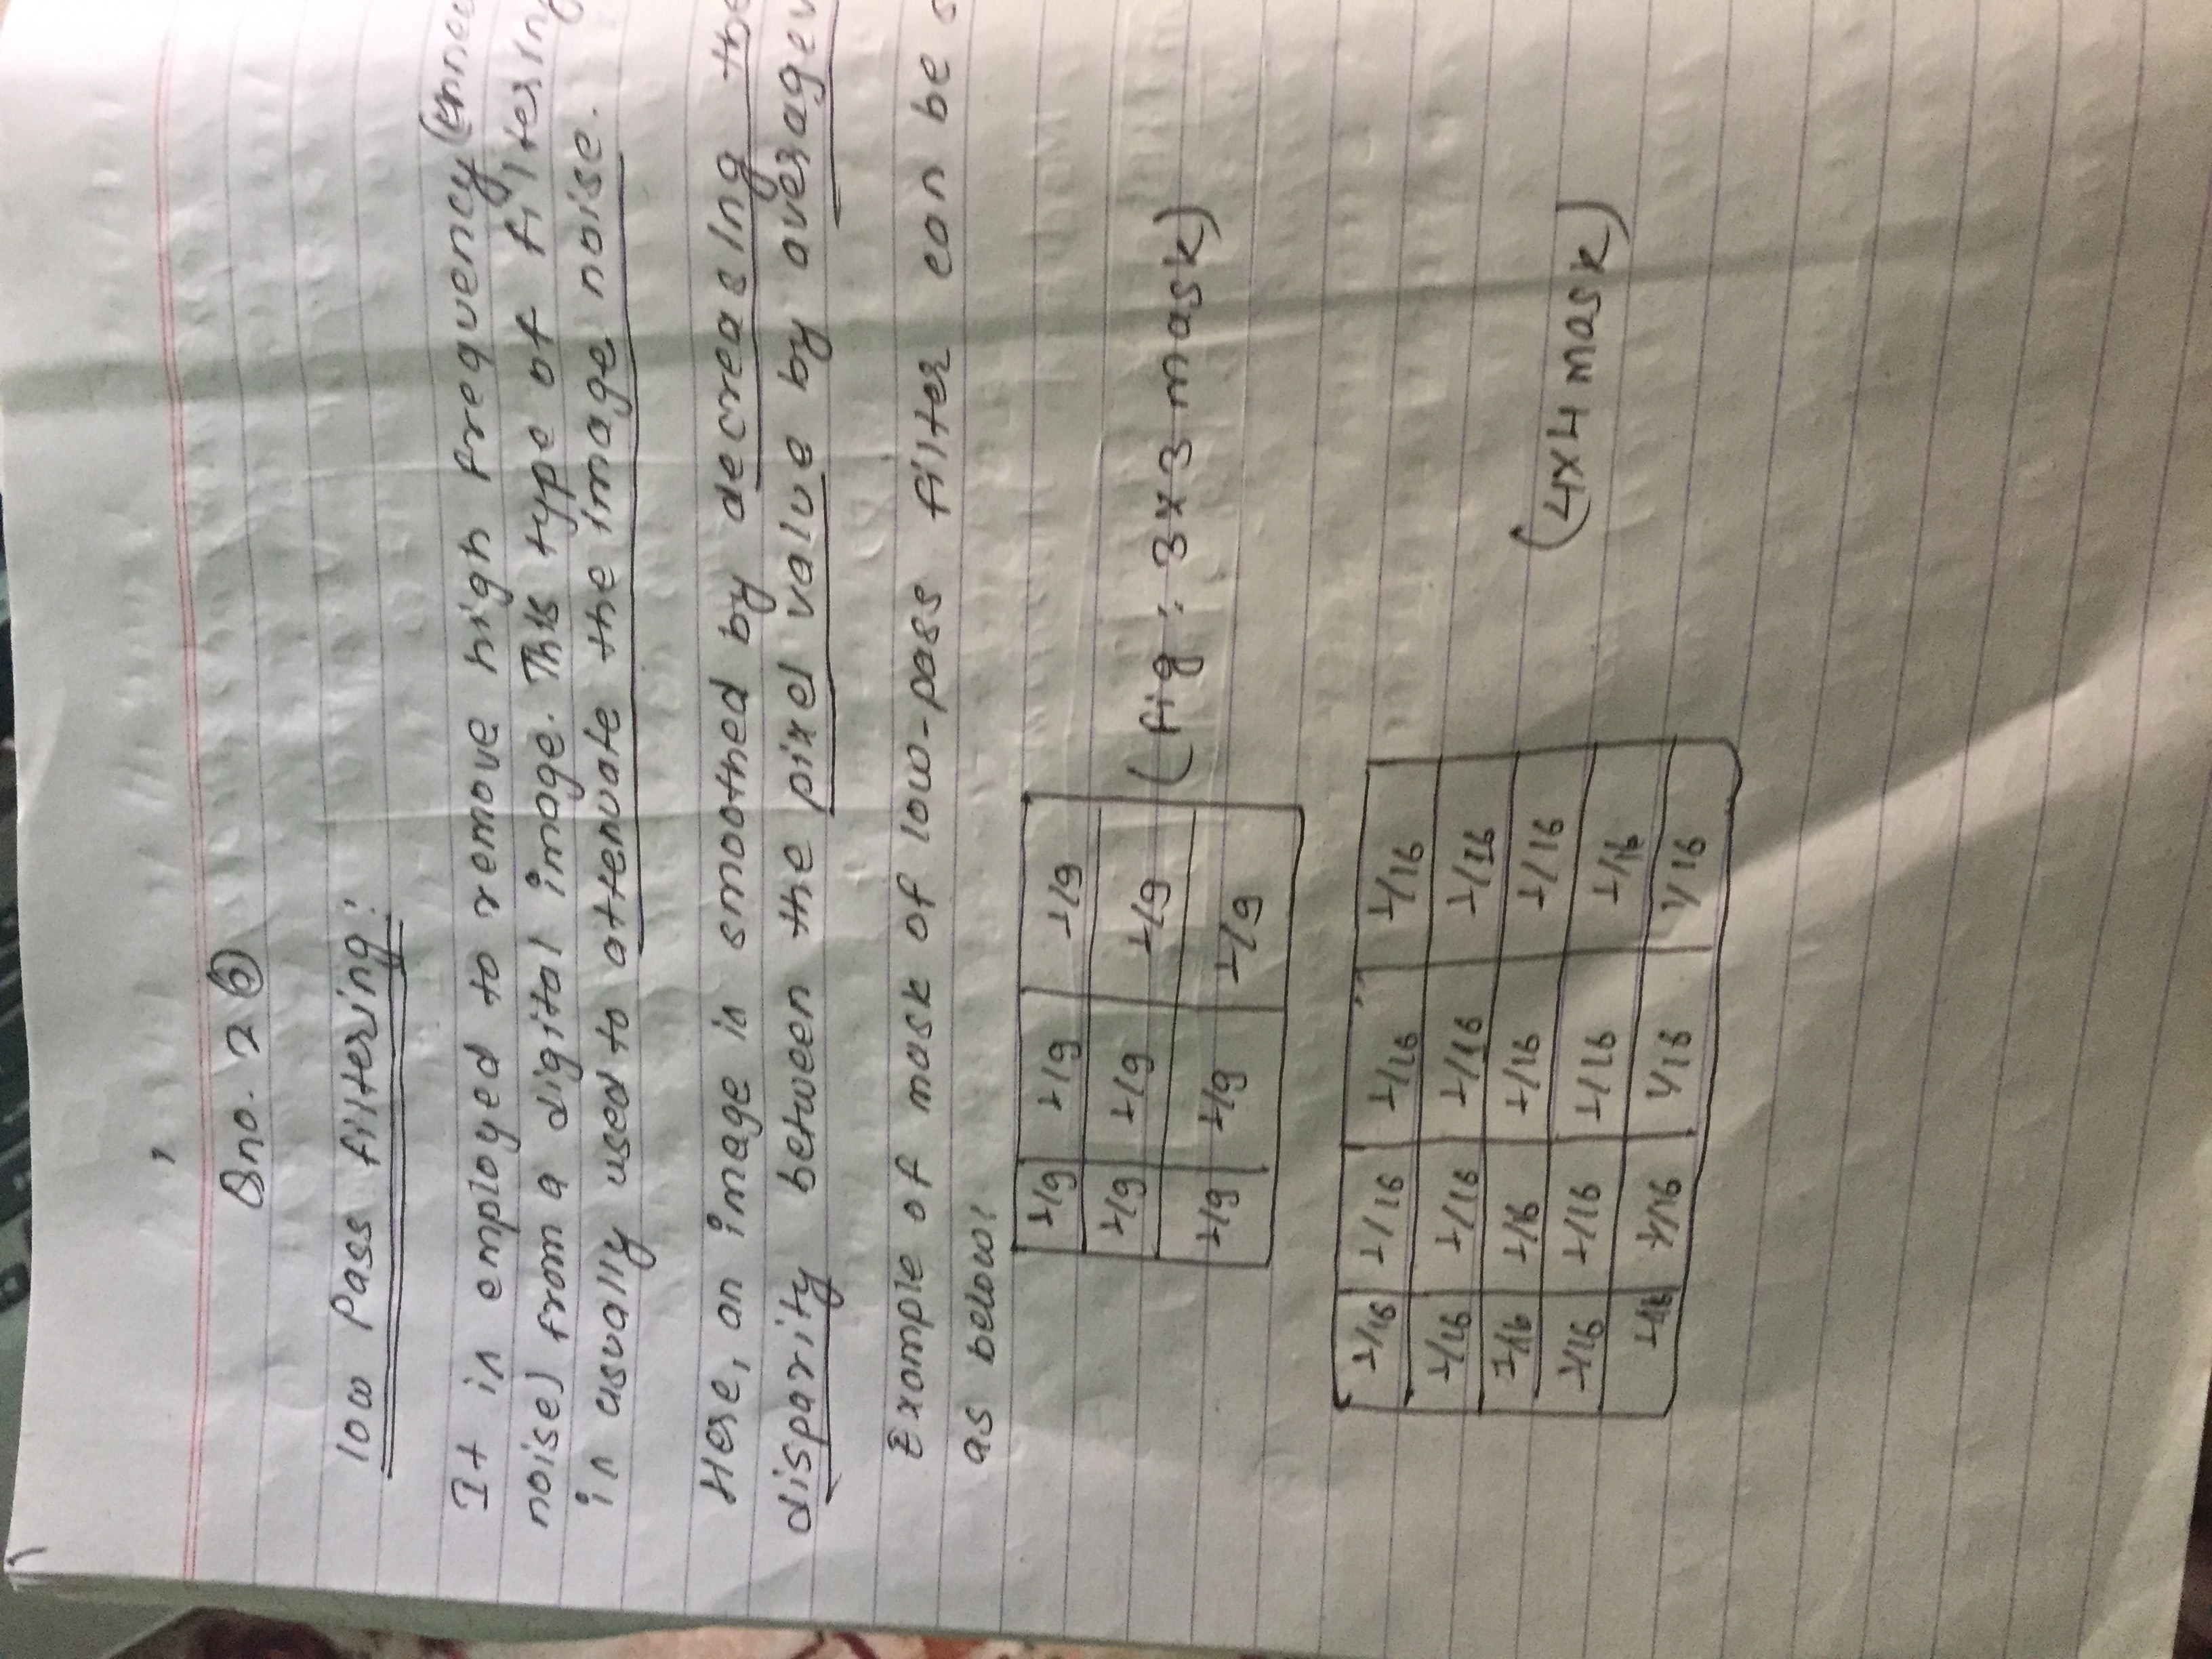 Qno. 2 (b)
low Pass filtering:
It is employed to remove high frequency
noise) from a digital image. This type of filtering
is usually used to attenuate the image noise.
Here, an image is smoothed by decreasing the
disparity between the pixel value by
Example of mask of low-pass filter can be
as below:
1/9 1/9 1/9
1/9 1/9 1/9
1/9 1/9 1/9
(fig: 3x3 mask)
1/16 1/16 1/16 1/16
1/16 1/16 1/16 1/16
1/16 1/16 1/16 1/16
1/16 1/16 1/16 1/16
1/16 1/16 1/16 1/16
(4x4 mask)